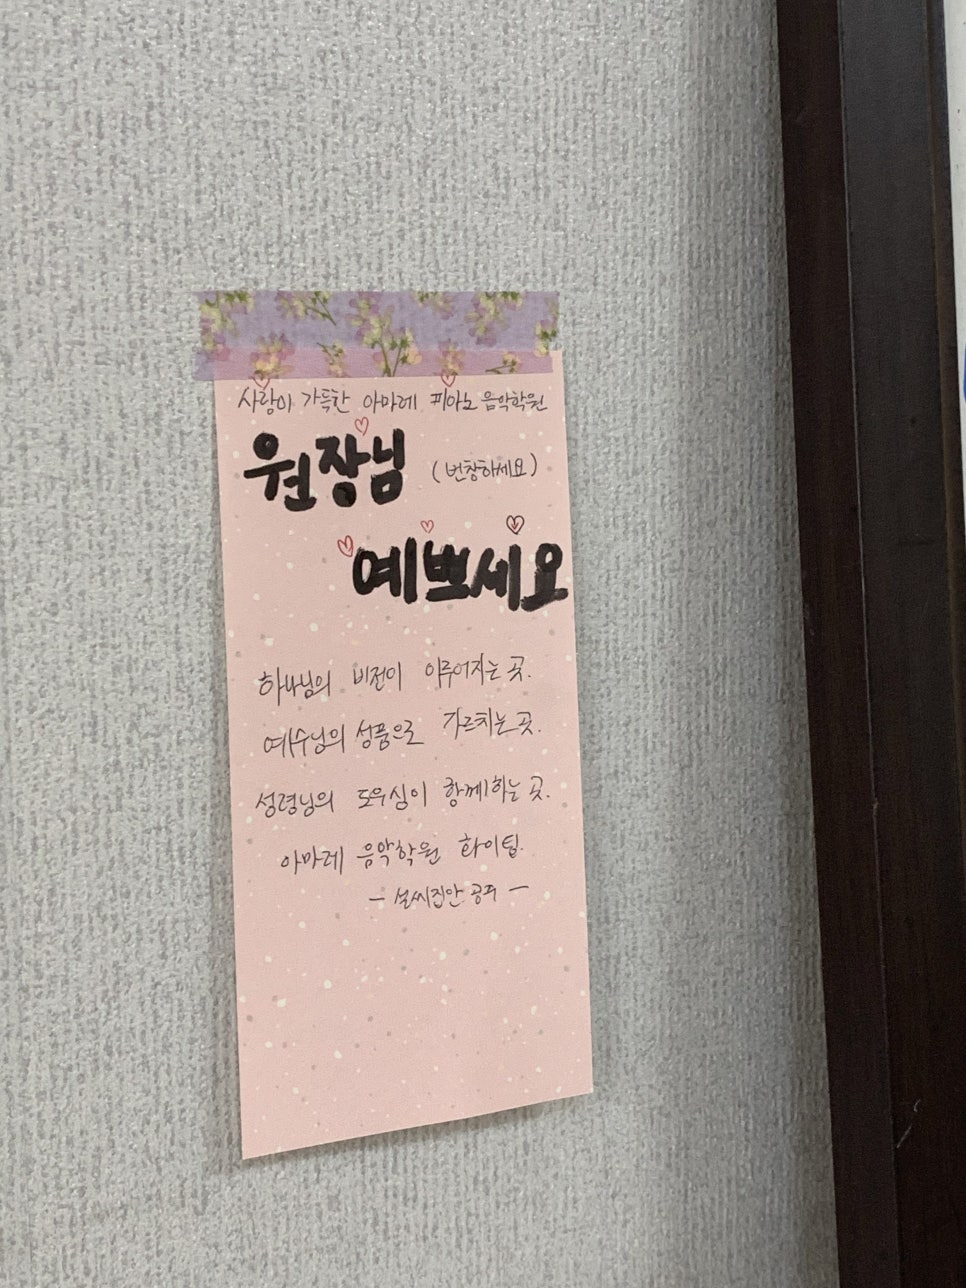 사랑이 가득한 아마레 피아노 음악학원
원장님 (번창하세요)
예쁘세요
하나님의 비전이 이루어지는 곳.
예수님의 성품으로 가르치는 곳.
성령님의 도우심이 함께하는 곳.
아마레 음악학원 화이팅.
- 설씨집안 공주 -